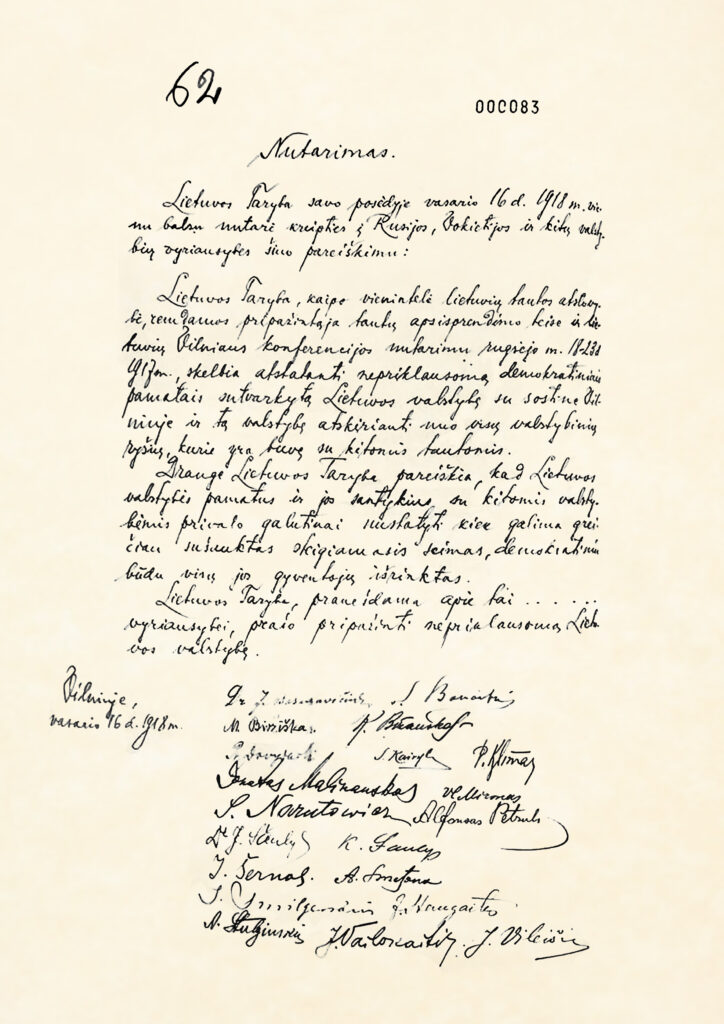 62
000083
Nutarimas.
Lietuvos Taryba savo posėdyje vasario 16 d. 1918 m. vie-
nu balsu nutarė kreipties į Rusijos, Vokietijos ir kitų valsty-
bių vyriausybes šiuo pareiškimu:
Lietuvos Taryba, kaipo vienintelė lietuvių tautos atstovy-
bė, remdamos pripažintąja tautų apsisprendimo teise ir lie-
tuvių Vilniaus konferencijos nutarimu rugsėjo m. 18-23 d.
1917 m., skelbia atstatanti nepriklausomą demokratiniais
pamatais sutvarkytą Lietuvos valstybę su sostine Vil-
niuje ir tą valstybę atskirianti nuo visų valstybinių
ryšių, kurie yra buvę su kitomis tautomis.
Drauge Lietuvos Taryba pareiškia, kad Lietuvos
valstybės pamatus ir jos santykius su kitomis valsty-
bėmis privalo galutinai nustatyti kiek galima grei-
čiau sušauktas steigiamasis seimas, demokratiniu
būdu visų jos gyventojų išrinktas.
Lietuvos Taryba, pranešdama apie tai . . . . . .
vyriausybei, prašo pripažinti nepriklausomą Lietu-
vos valstybę.
Vilniuje,
vasario 16 d. 1918 m.
Dr J. Basanavičius S Banaitis
M. Biržiška K. Bizauskas
P. Dovydaitis S Kairys P. Klimas
Donatas Malinauskas Vl. Mironas
S. Narutowicz Alfonsas Petrulis
Dr J. Šaulys K. Šaulys
J. Šernas. A. Smetona
J. Smilgevičius J. Staugaitis
A. Stulginskis J. Vailokaitis J. Vileišis